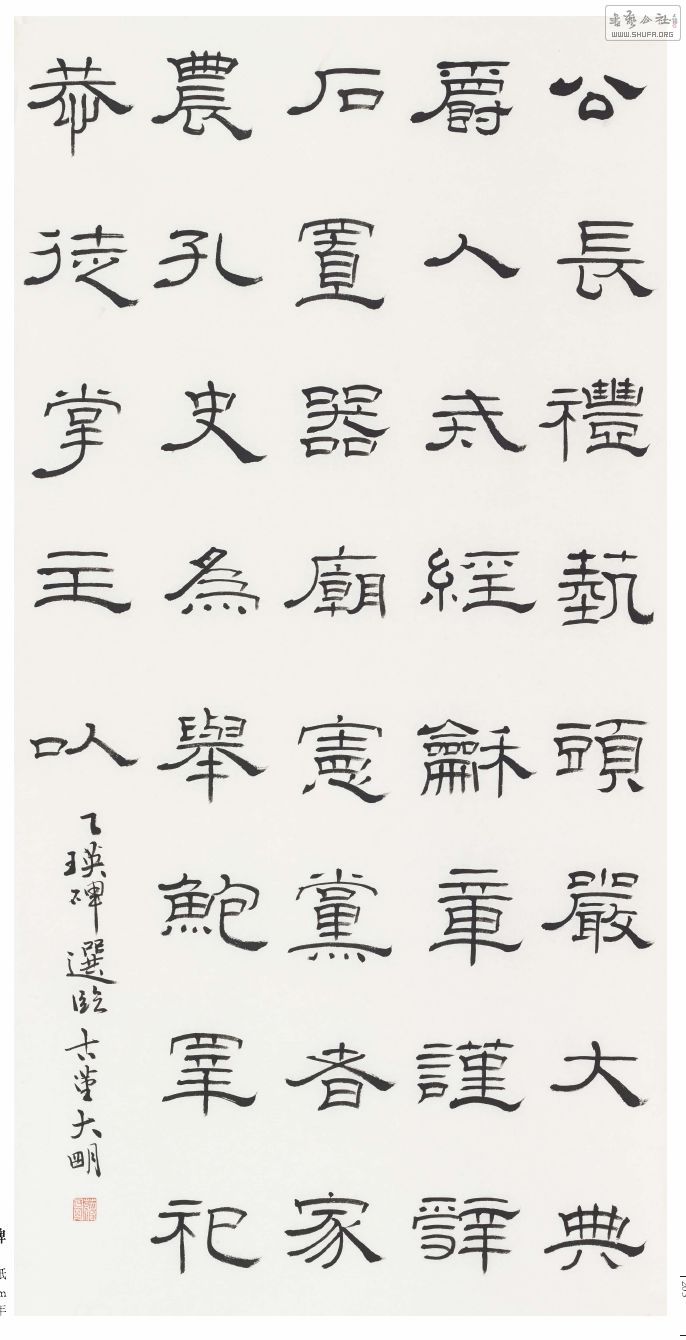 書藝公社
WWW.SHUFA.ORG
公長禮埶頭嚴大典
爵人式經龢章謹辭
石置器廟憲黨者家
農孔史為舉鮑睪祀
恭徒掌主叺
乙瑛碑選臨 古堂大明